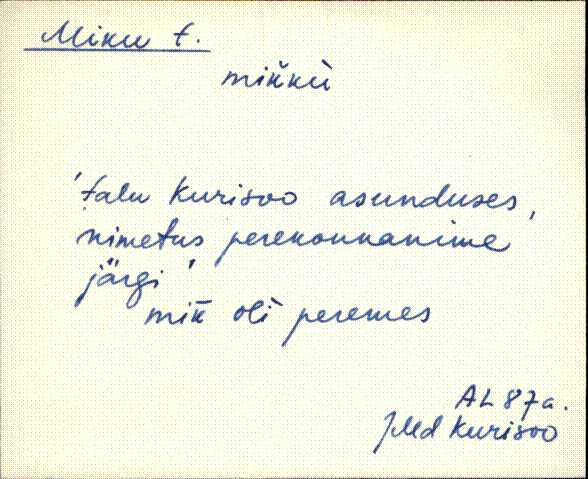 Miku t.
mikku
'talu Kurisoo asunduses,
nimetus perekonnanime
järgi'
mik oli peremes
AL 87a.
JMd Kurisoo